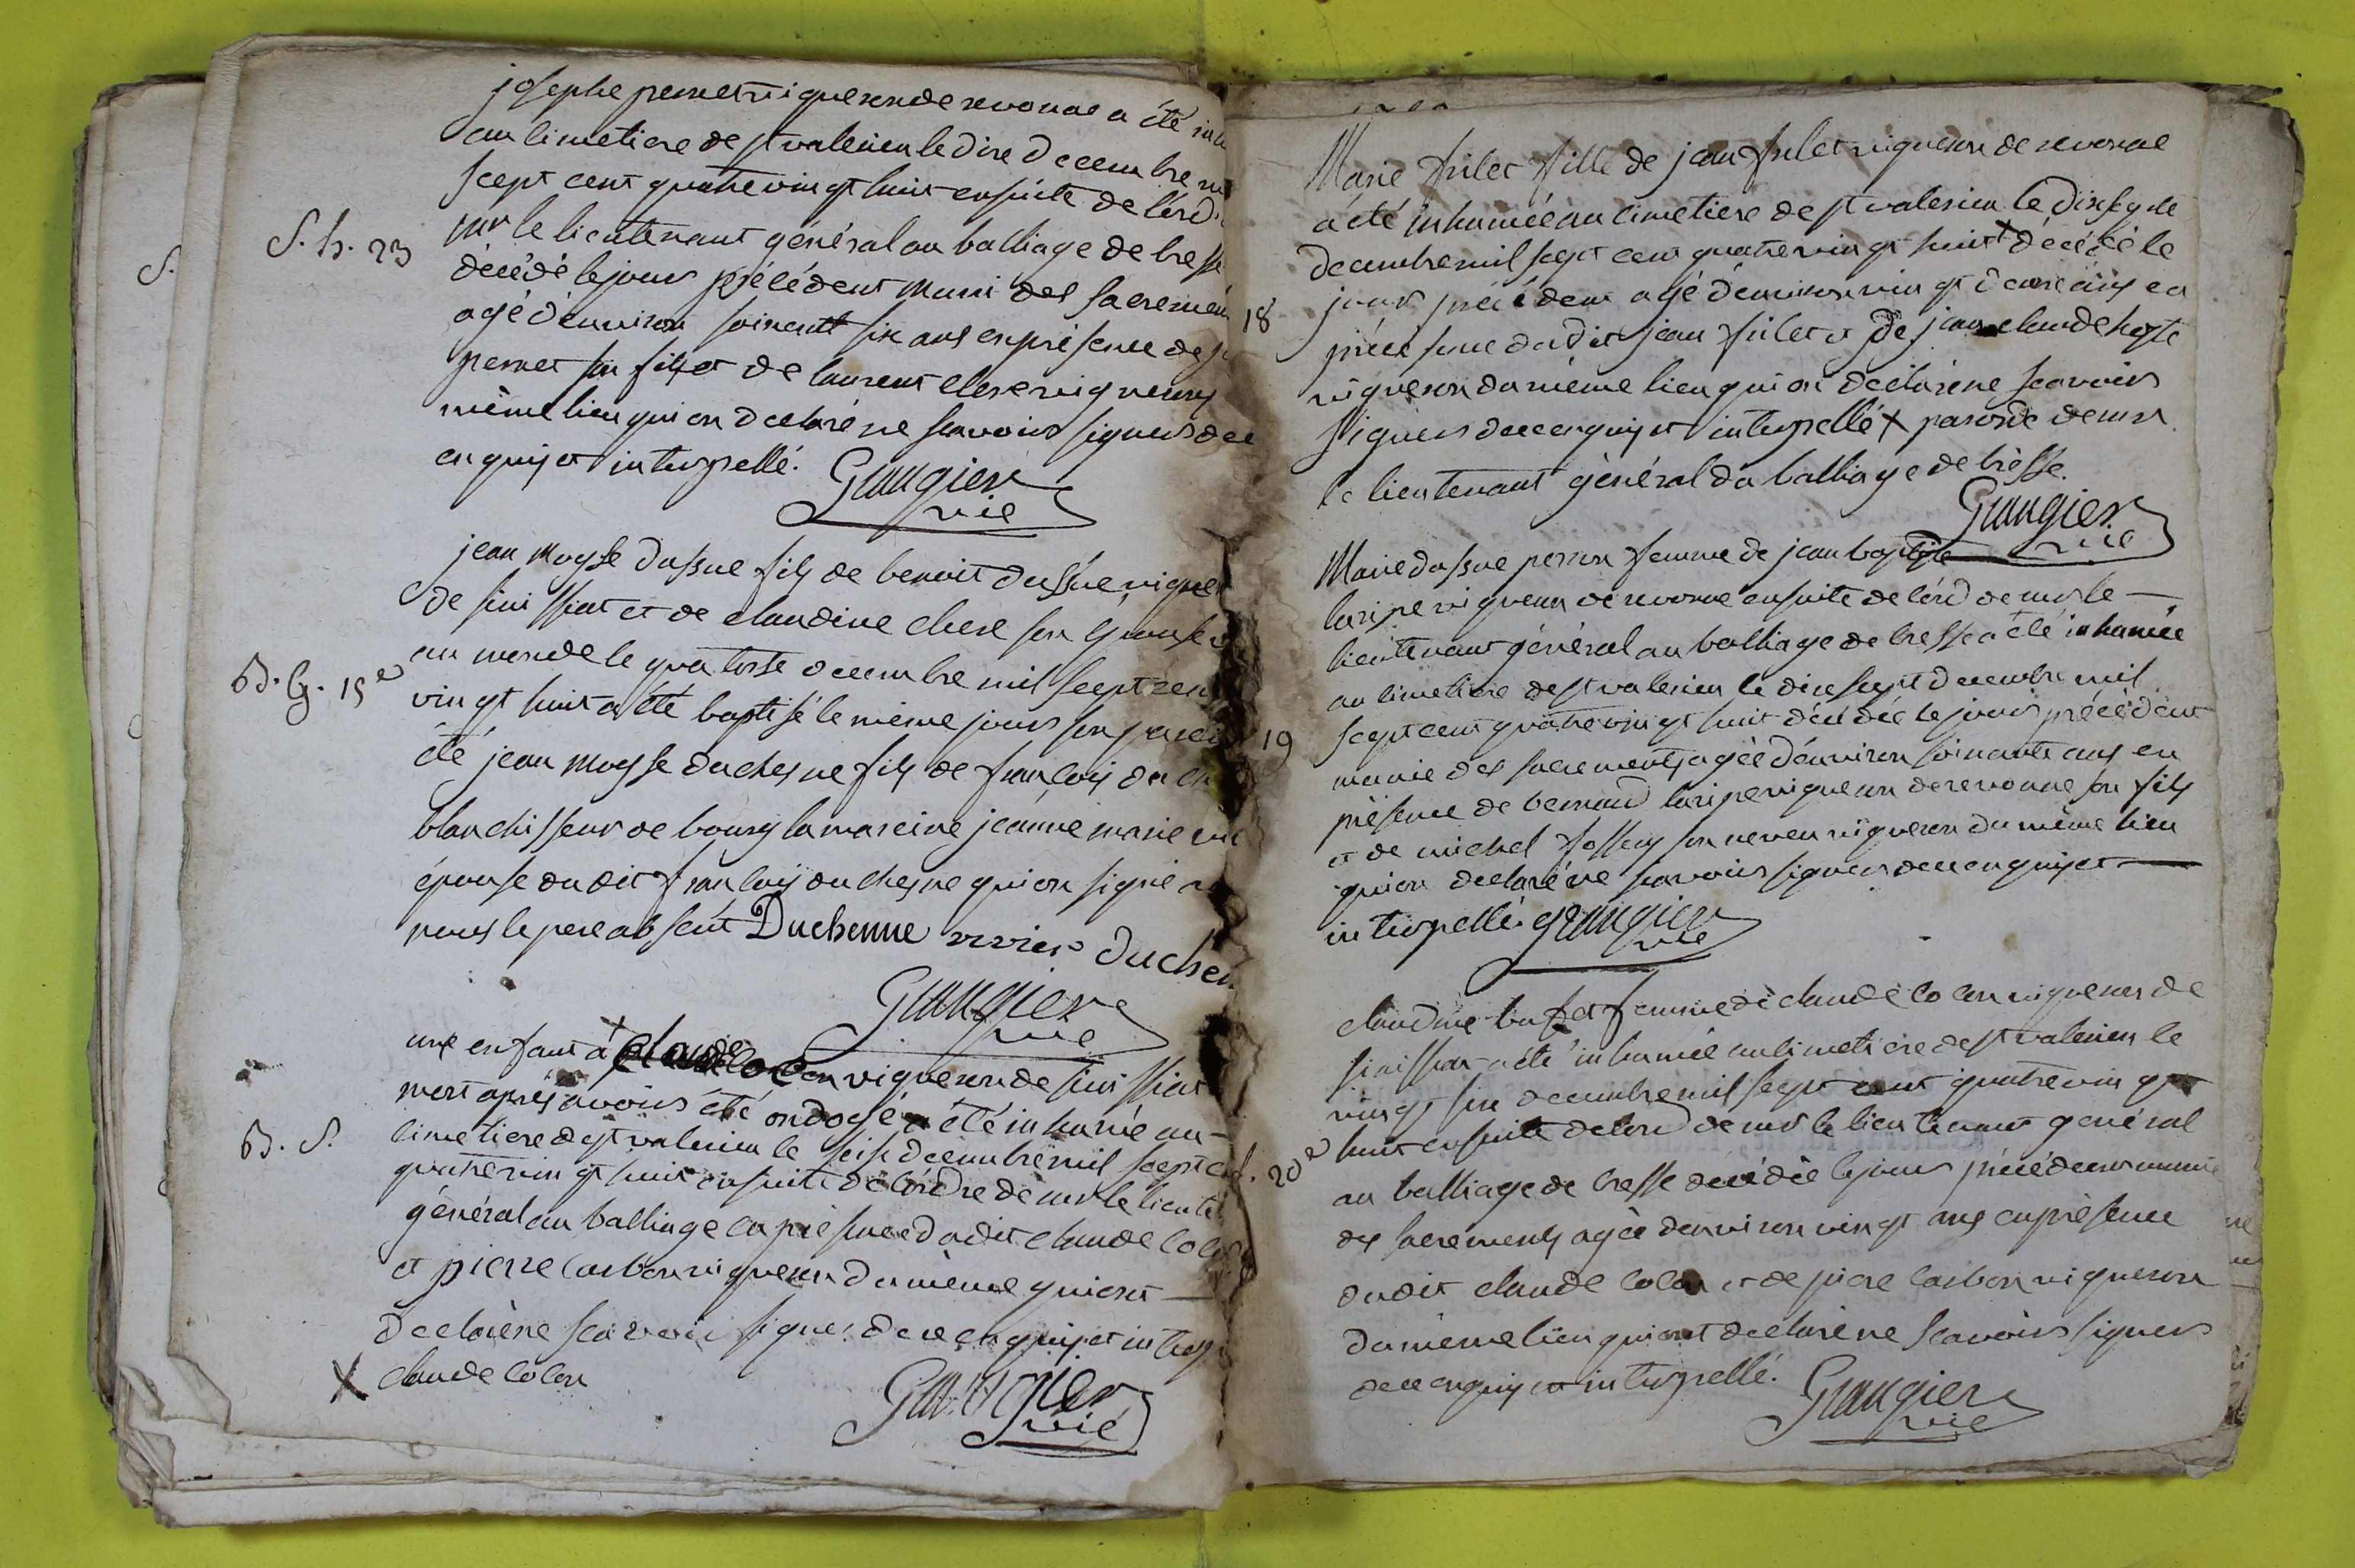 josephe perret vigneron de revonas a été
au cimetiere de st valerien le dix decembre
sept cent quatre vingt huit ensuite de l'ord
S. h. 23
mr le lieutenant général au balliage de bresse
décédé le jour précédent muni des sacremen
agé d'environ soixante six ans en présence de
perret son fils et de laurent clere vigneron
même lieu qui on declaré ne scavoir signer de ce
enquis et interpellé.
Grangier
vic
jean moyse dussue fils de benoit dussue vigner
de sinissiat et de claudine clere son épouse
au monde le quatorse decembre mil sept cen
B. g. 15e
vingt huit a été baptisé le même jour son parein
été jean moysse duchesne fils de françois du ch
blanchisseur de bourg la mareine jeanne marie
épouse du dit françois duchesne qui on signé
nous le pere absent Duchenne vivier Duchen
Grangier
vic
une enfant à X claude colon vigneron de sinissiat
mort apres avoir été ondoyé a été inhumé au
B. S.
cimetiere de st valerien le seise decembre mil sept cen
quatre vingt huit ensuite de l'ordre de mr le lieuten
général au balliage en présence du dit claude colon
et pierre carbon vigneron du même qui ont
declaré ne scavoir signer de ce enquis et interp
X claude colon
Grangier
vic
Marie frilet fille de jean frilet vigneron de revonas
a été inhumée au cimetiere de st valerien le dix sept de
decembre mil sept cent quatre vingt huit X décédé le
18
jour précédent agé d'environ vingt deux ans en
présence du dit jean frilet et de jean claude
vigneron du même lieu qui on déclaré ne scavoir
signer de ce enquis et interpellé X par ord de mr
le lieutenant général du balliage de bresse.
Grangier
vic
Marie dussue perron femme de jean baptiste
laripe vigneron de revonas ensuite de l'ord de mr le
lieutenant général au balliage de bresse a été inhumée
au cimetiere de st valerien le dix sept decembre mil
19
sept cent quatre vingt huit décédée le jour précédent
munie des sacrements agée d'environ soixante ans en
présence de bernard laripe vigneron de revonas son fils
et de michel son neveu vigneron du même lieu
qui on declaré ne scavoir signer de ce enquis et
interpellé. Grangier
vic
claudine bufet femme de claude colon vigneron de
sinissiat a été inhumée au cimetiere de st valerien le
vingt six decembre mil sept cent quatre vingt
20e
huit ensuite de l'ord de mr le lieutenant général
au balliage de bresse décédée le jour précédent munie
des sacrements agée d'environ vingt ans en présence
du dit claude colon et de piere carbon vigneron
du même lieu qui ont declaré ne scavoir signer
de ce enquis et interpellé.
Grangier
vic